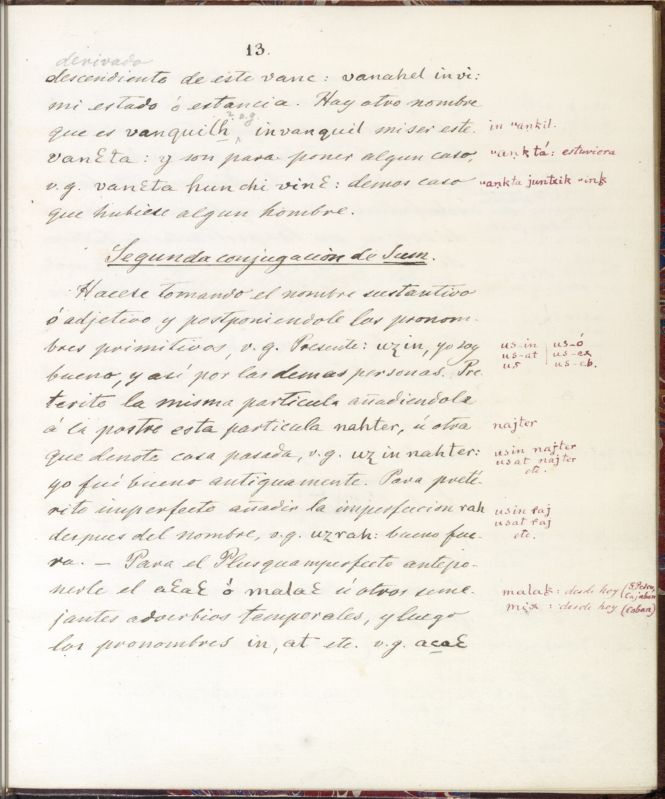 13.
derivado
descendiente de este vanc: vanahel invi:
mi estado ó estancia. Hay otro nombre
que es vanquilh, v.g. invanquil mi ser este.
in vankil.
vanƐta: y son para poner algun caso,
vanktá: estuviera
v.g. vanƐta hun chi vinƐ: demos caso
vankta juntzik vink
que hubiese algun hombre.
Segunda conjugacion de Sum.
Hacese tomando el nombre sustantivo
ó adjetivo y postponiendole los pronom-
bres primitivos, v.g. Presente: uz in, yo soy
us-in | us-ó
bueno, y así por las demas personas. Pre-
us-at | us-ex
us | us-eb.
terito la misma particula añadiendole
á la postre esta particula nahter, ú otra
najter
que denote cosa pasada, v.g. uz in nahter:
usin najter
yo fuí bueno antiguamente. Para preté-
usat najter
etc.
rito imperfecto añadir la imperfeccion rah
usin raj
despues del nombre, v.g. uzrah: bueno fue-
usat raj
etc.
ra. — Para el Plusquamperfecto antepo-
nerle el aƐaƐ ó malaƐ ú otros seme-
malak: desde hoy (S. Pedro, Cajabón
jantes adverbios temporales, y luego
mix: desde hoy (Coban)
los pronombres in, at etc. v.g. acaƐ